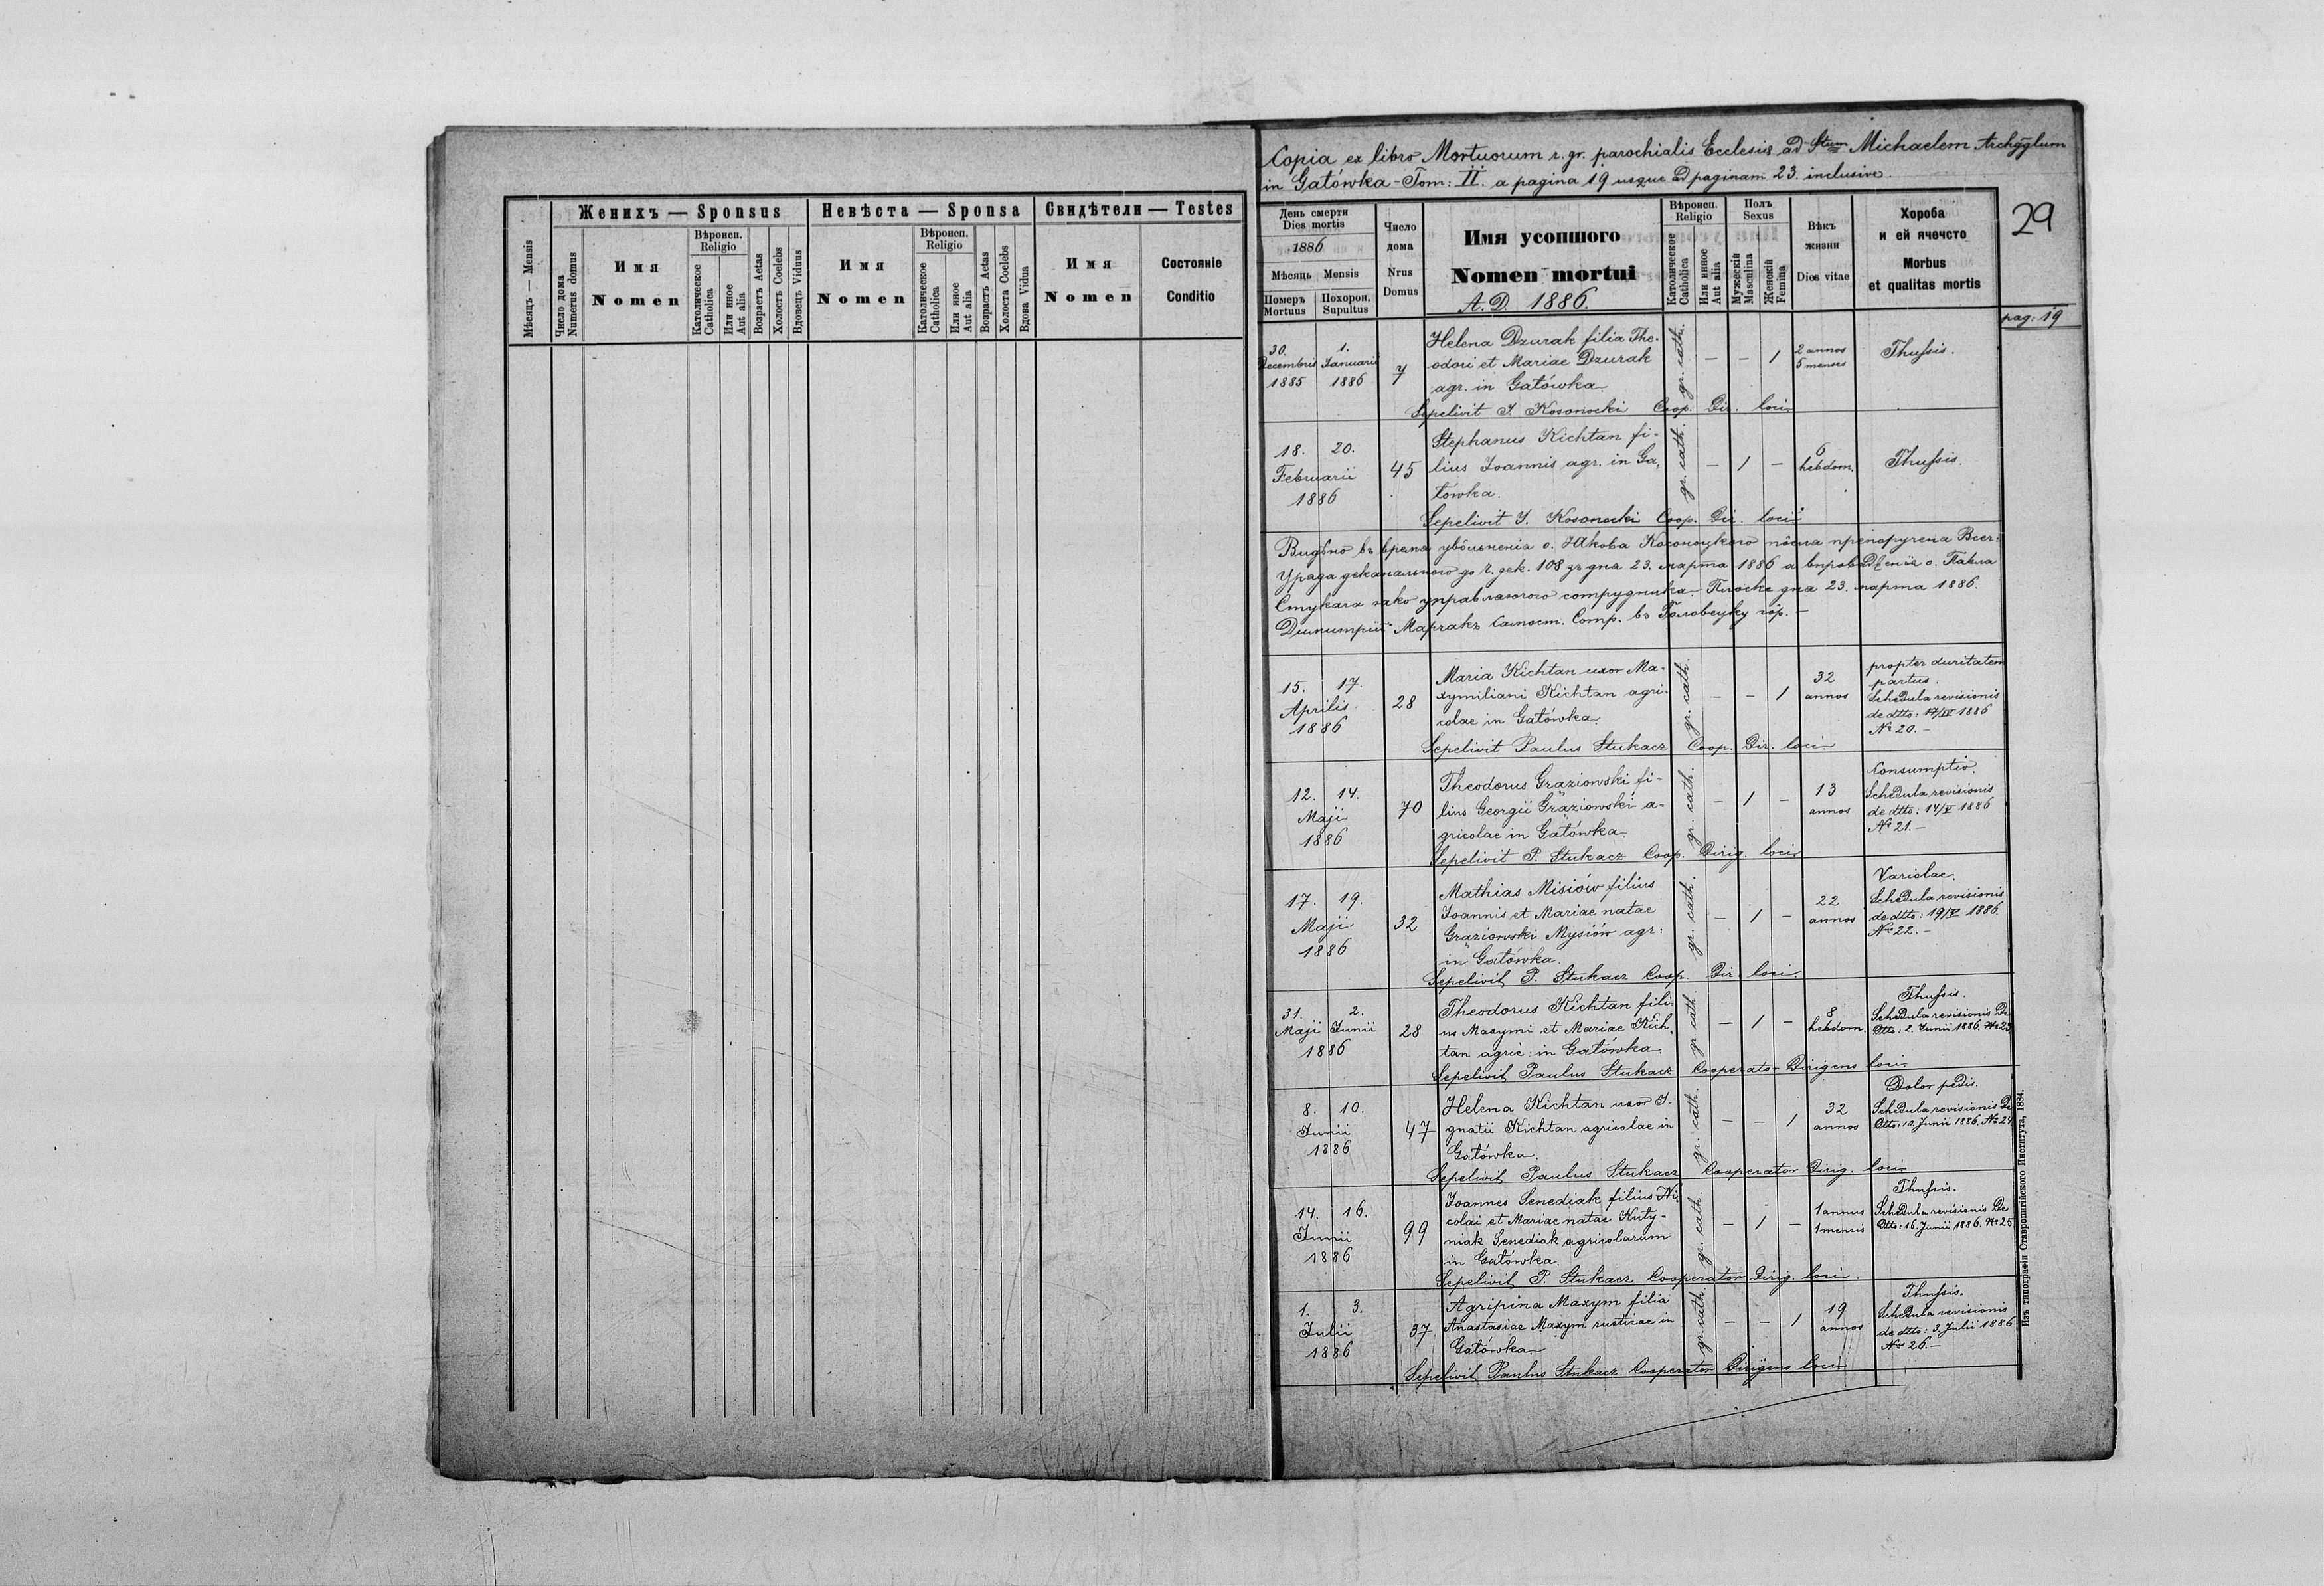 Женихъ — Sponsus
Невѣста — Sponsa
Свидѣтели — Testes
Мѣсяцъ — Mensis
Число дома
Numerus domus
Имя
Nomen
Вѣроисп.
Religio
Католическое
Catholica
Или иное
Aut alia
Возрастъ Aetas
Холостъ Coelebs
Вдовецъ Viduus
Имя
Nomen
Вѣроисп.
Religio
Католическое
Catholica
Или иное
Aut alia
Возрастъ Aetas
Холоста Coelebs
Вдова Vidua
Имя
Nomen
Состояніе
Conditio
Copia ex libro Mortuorum r. gr. parochialis Ecclesiæ ad Stum Michaelem Archglum
in Gatówka - Tom: II. a pagina 19 usque ad paginam 23. inclusive.
29
День смерти
Dies mortis
1886
Мѣсяць Mensis
Померъ Похорон.
Mortuus Supultus
Число
дома
Nrus
Domus
Имя усопшого
Nomen mortui
A. D. 1886.
Вѣроисп.
Religio
Католическое
Catholica
Или инное
Aut alia
Полъ
Sexus
Мужескій
Masculina
Женскій
Femina
Вѣкъ
жизни
Dies vitae
Хороба
и ей ячечсто
Morbus
et qualitas mortis
pag: 19
30. 1.
Decembris Januarii
1885 1886
7
Helena Dzurak filia The-
odori et Mariae Dzurak
agr. in Gatówka.
gr. cath. — — 1
2 annos
5 menses
Thussis.
Sepelivit J. Kosonocki Coop. Dir. loci
18. 20.
Februarii
1886
45
Stephanus Kichtan fi-
lius Joannis agr. in Ga-
tówka.
gr. cath. — 1 —
6
hebdom.
Thussis.
Sepelivit J. Kosonocki Coop. Dir. loci
Видѣно въ время увôльненія о. Якова Косоноцкого пôсля препоручена Всеч.
Уряда деканального до Ч. дек. 108 зъ дня 23. марта 1886 а впроваdженія о. Павла
Стукача яко управляючого сотрудника. Плоске дня 23. марта 1886.
Димитрій Марчакъ Самост. Сотр. въ Головецку гôр. —
15. 17.
Aprilis
1886
28
Maria Kichtan uxor Ma-
xymiliani Kichtan agri-
colae in Gatówka
gr. cath. — — 1
32
annos
propter duritatem
partus.
Schedula revisionis
de dtto: 17/IV 1886
No 20. —
Sepelivit Paulus Stukacz Coop. Dir. loci
12. 14.
Maji
1886
70
Theodorus Graziowski fi-
lius Georgii Graziowski a-
gricolae in Gatówka
gr. cath. — 1 —
13
annos
Consumptio.
Schedula revisionis
de dtto: 14/V 1886
No 21. —
Sepelivit P. Stukacz Coop. Dirig. loci
17. 19.
Maji
1886
32
Mathias Misiów filius
Joannis et Mariae natae
Graziowski Mysiów agr:
in Gatówka.
gr. cath. — 1 —
22
annos
Variolae.
Schedula revisionis
de dtto: 19/V 1886.
No 22. —
Sepelivit P. Stukacz Coop. Dir. loci.
31. 2.
Maji Junii
1886
28
Theodorus Kichtan fili-
us Maxymi et Mariae Kich-
tan agric: in Gatówka.
gr. cath. — 1 —
8
hebdom.
Thussis.
Schedula revisionis De
Dtto: 2. Junii 1886. No 23
Sepelivit Paulus Stukacz Cooperator Dirigens loci
8. 10.
Junii
1886
47
Helena Kichtan uxor I-
gnatii Kichtan agricolae in
Gatówka.
gr. cath. — — 1
32
annos
Dolor pedis.
Schedula revisionis De
Dtto: 10. Junii 1886. No 24
Sepelivit Paulus Stukacz Cooperator Dirig. loci
14. 16.
Junii
1886
99
Joannes Senediak filius Ni-
colai et Mariae natae Kuty-
niak Senediak agricolarum
in Gatówka.
gr. cath. — 1 —
1 annus
1 mensis
Thussis.
Schedula revisionis De
Dtto: 16. Junii 1886. No 25
Sepelivit P. Stukacz Cooperator Dirig. loci.
1. 3.
Julii
1886
37
Agripina Maxym filia
Anastasiae Maxym rusticae in
Gatówka
gr. cath. — — 1
19
annos
Thussis.
Schedula revisionis
de dtto: 3. Julii 1886
No 26. —
Sepelivit Paulus Stukacz Cooperator Dirigens loci
Изъ типографіи Ставропигійского Института, 1884.